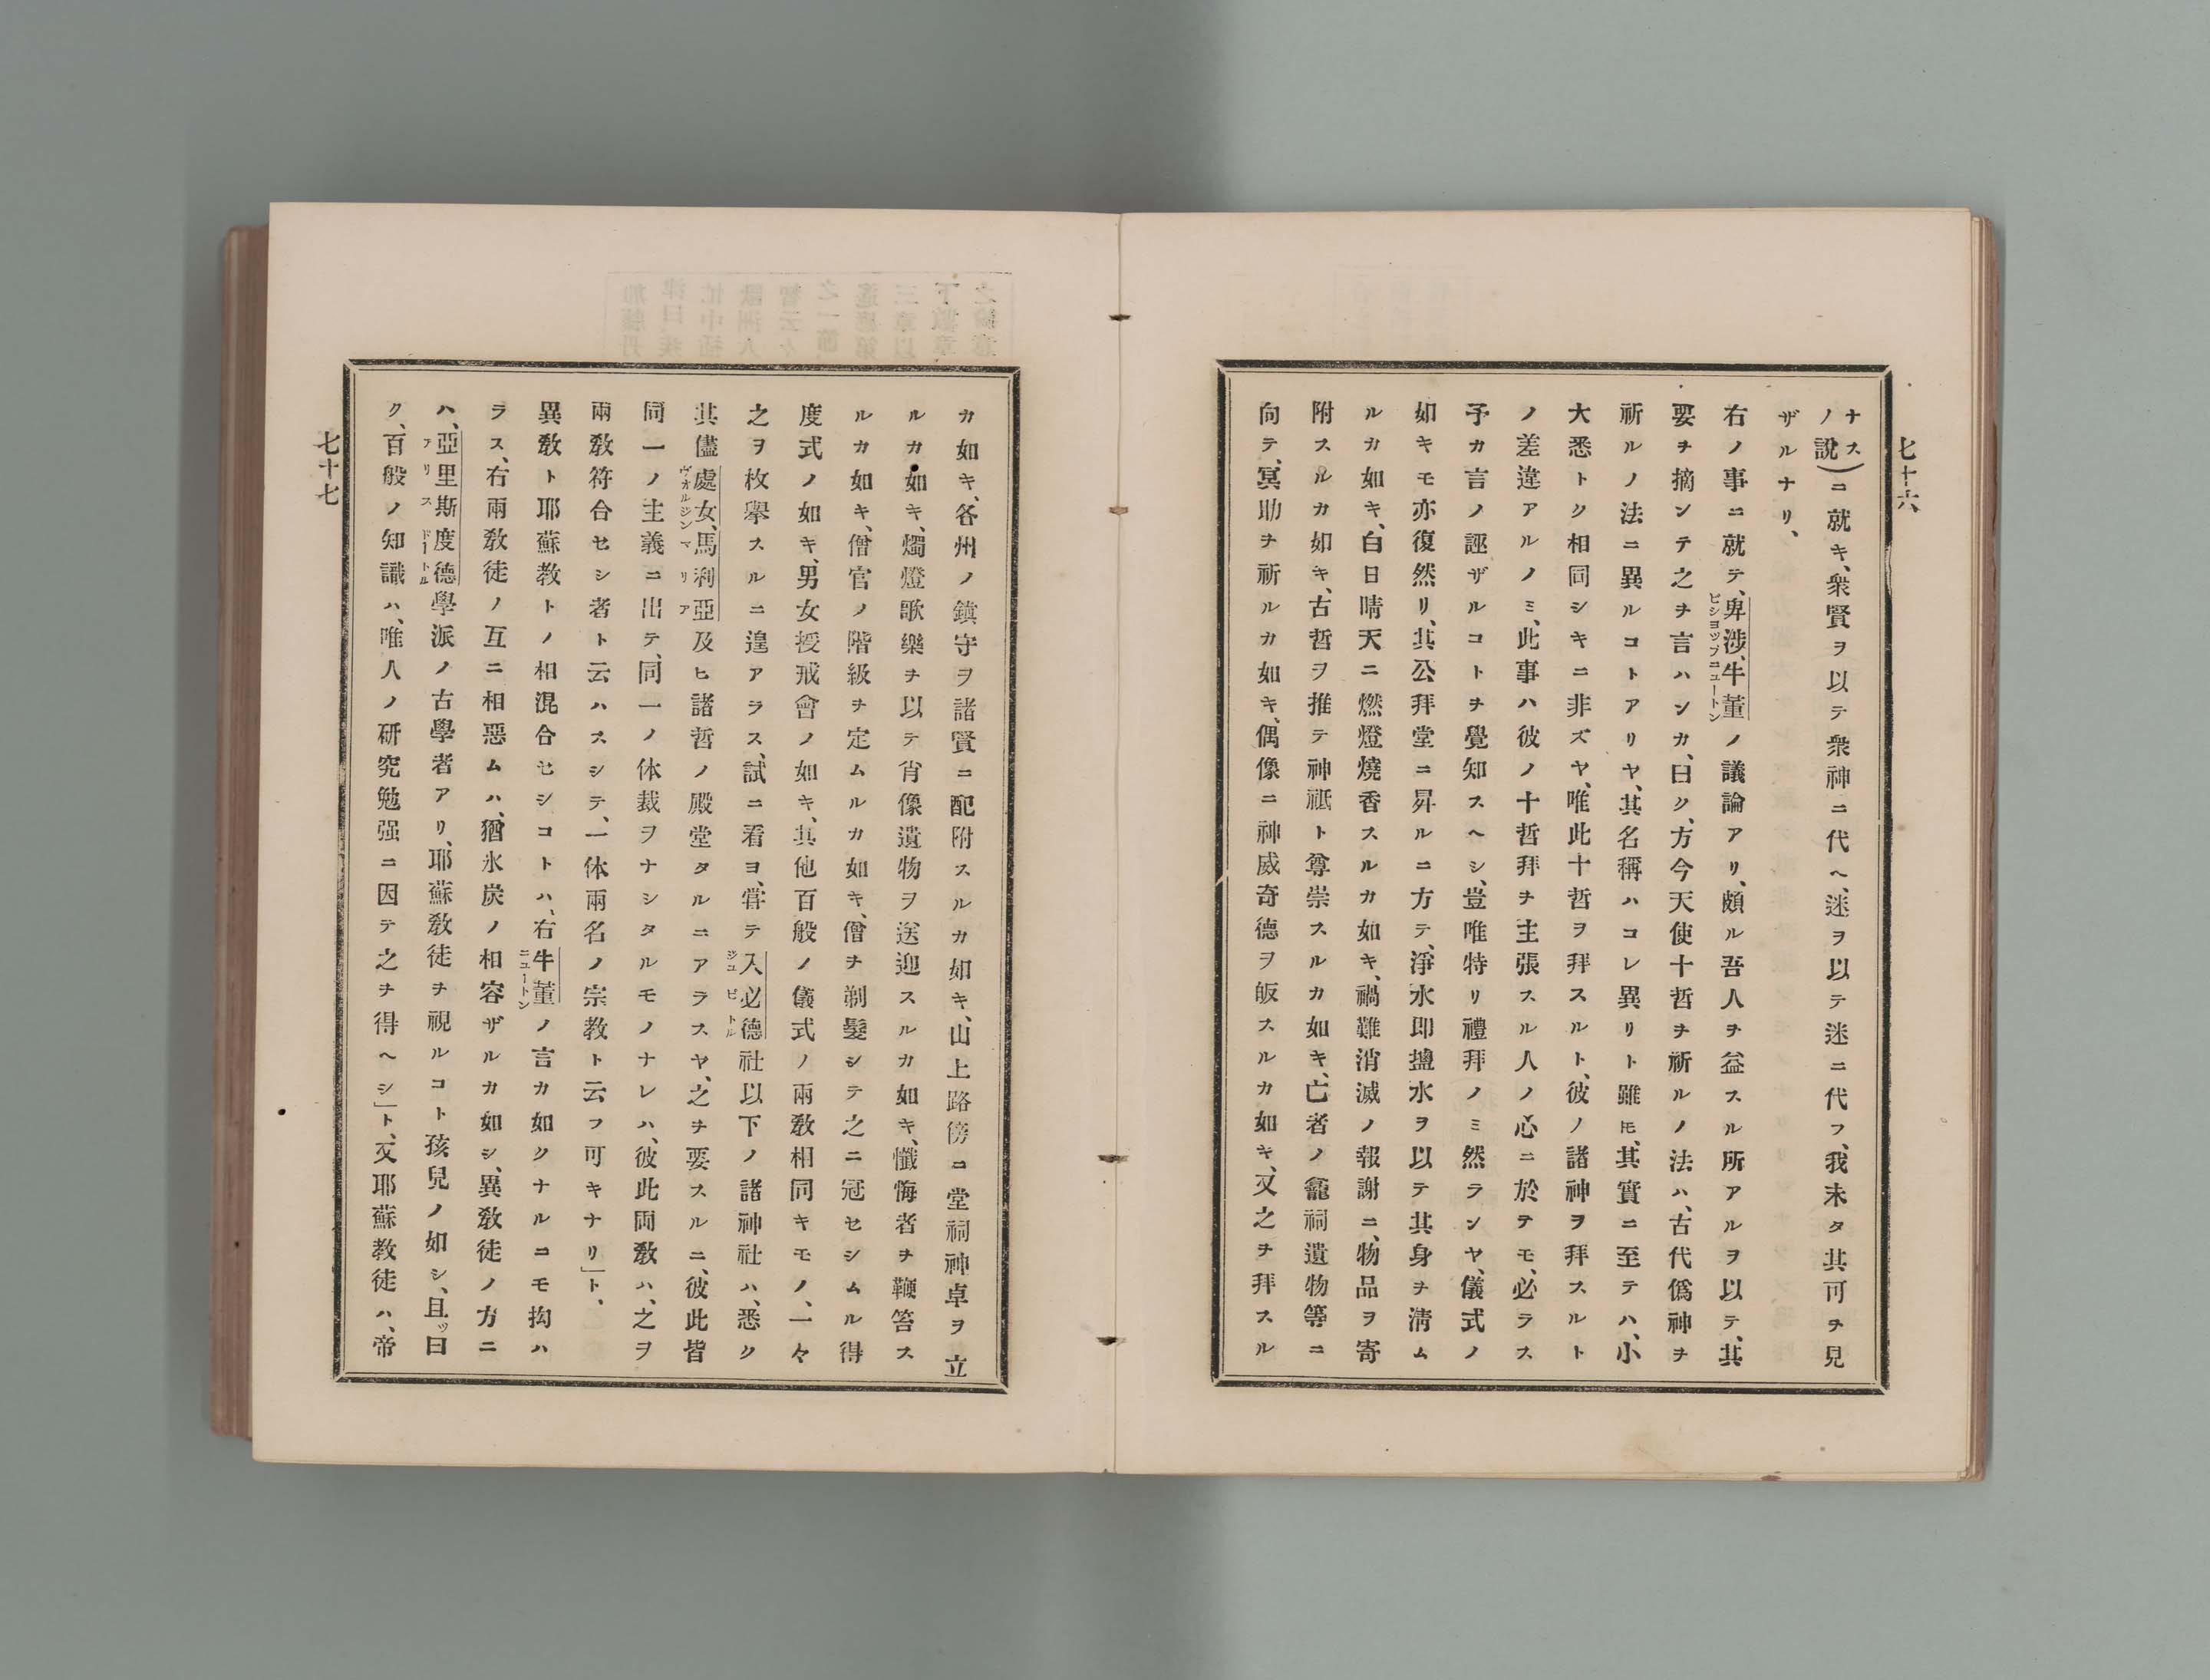 七十六
ナス
ノ説)ニ就キ、衆賢ヲ以テ衆神ニ代ヘ、迷ヲ以テ迷ニ代フ、我未タ其可ヲ見
ザルナリ、
右ノ事ニ就テ、卑渉、牛董ノ議論アリ、頗ル吾人ヲ益スル所アルヲ以テ、其
ビショップニュートン
要ヲ摘ンテ之ヲ言ハンカ、曰ク、方今天使十哲ヲ祈ルノ法ハ、古代僞神ヲ
祈ルノ法ニ異ルコトアリヤ、其名稱ハコレ異リト雖𪜈、其實ニ至テハ、小
大悉トク相同シキニ非ズヤ、唯此十哲ヲ拜スルト、彼ノ諸神ヲ拜スルト
ノ差違アルノミ、此事ハ彼ノ十哲拜ヲ主張スル人ノ心ニ於テモ、必ラス
予カ言ノ誣ザルコトヲ覺知スヘシ、豈唯特リ禮拜ノミ然ランヤ、儀式ノ
如キモ亦復然リ、其公拜堂ニ昇ルニ方テ、淨水即鹽水ヲ以テ其身ヲ淸ム
ルカ如キ、白日晴天ニ燃燈燒香スルカ如キ、禍難消滅ノ報謝ニ、物品ヲ寄
附スルカ如キ、古哲ヲ推テ神祇ト尊崇スルカ如キ、亡者ノ龕祠遺物等ニ
向テ、冥助ヲ祈ルカ如キ、偶像ニ神威奇德ヲ皈スルカ如キ、又之ヲ拜スル
カ如キ、各州ノ鎭守ヲ諸賢ニ配附スルカ如キ、山上路傍ニ堂祠神卓ヲ立
ルカ如キ、燭燈歌樂ヲ以テ肖像遺物ヲ送迎スルカ如キ、懺悔者ヲ鞭笞ス
ルカ如キ、僧官ノ階級ヲ定ムルカ如キ、僧ヲ剃髮シテ之ニ冠セシムル得
度式ノ如キ、男女授戒會ノ如キ、其他百般ノ儀式ノ兩敎相同キモノ、一々
之ヲ枚擧スルニ遑アラス、試ニ看ヨ、甞テ入必德社以下ノ諸神社ハ、悉ク
ジュピトル
其儘處女、馬利亞及ヒ諸哲ノ殿堂タルニアラスヤ、之ヲ要スルニ、彼此皆
ヴォルジンマリア
同一ノ主義ニ出テ、同一ノ体裁ヲナシタルモノナレハ、彼此両敎ハ、之ヲ
兩敎符合セシ者ト云ハスシテ、一体兩名ノ宗敎ト云フ可キナリ」ト、
異敎ト耶蘇敎トノ相混合セシコトハ、右牛董ノ言カ如クナルニモ拘ハ
ニュートン
ラス、右兩敎徒ノ互ニ相惡ムハ、猶氷炭ノ相容ザルカ如シ、異敎徒ノ方ニ
ハ、亞里斯度德學派ノ古學者アリ、耶蘇敎徒ヲ視ルコト孩兒ノ如シ、且ッ曰
アリスドートル
ク、百般ノ知識ハ、唯人ノ研究勉强ニ因テ之ヲ得ヘシ」ト、又耶蘇敎徒ハ、帝
七十七